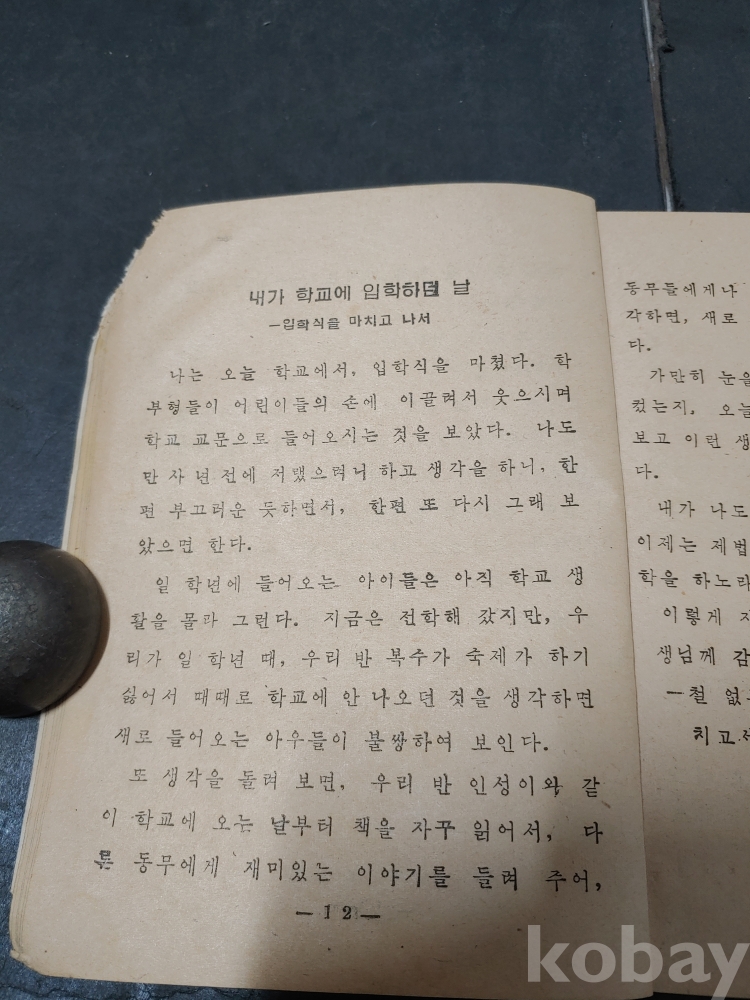 내가 학교에 입학하던 날
—입학식을 마치고 나서
나는 오늘 학교에서, 입학식을 마쳤다. 학
부형들이 어린이들의 손에 이끌려서 웃으시며
학교 교문으로 들어오시는 것을 보았다. 나도
만 사 년 전에 저랬으려니 하고 생각을 하니, 한
편 부끄러운 듯하면서, 한편 또 다시 그래 보
았으면 한다.
일 학년에 들어오는 아이들은 아직 학교 생
활을 몰라 그런다. 지금은 전학해 갔지만, 우
리가 일 학년 때, 우리 반 복주가 숙제가 하기
싫어서 때때로 학교에 안 나오던 것을 생각하면
새로 들어오는 아우들이 불쌍하여 보인다.
또 생각을 돌려 보면, 우리 반 인성이와 같
이 학교에 오는 날부터 책을 자꾸 읽어서, 다
른 동무에게 재미있는 이야기를 들려 주어,
— 1 2 —
동무들에게나
각하면, 새로
다.
가만히 눈을
컸는지, 오늘
보고 이런 생
다.
내가 나도
이제는 제법
학을 하노라
이렇게
생님께 감
—철 없
치고
kobay